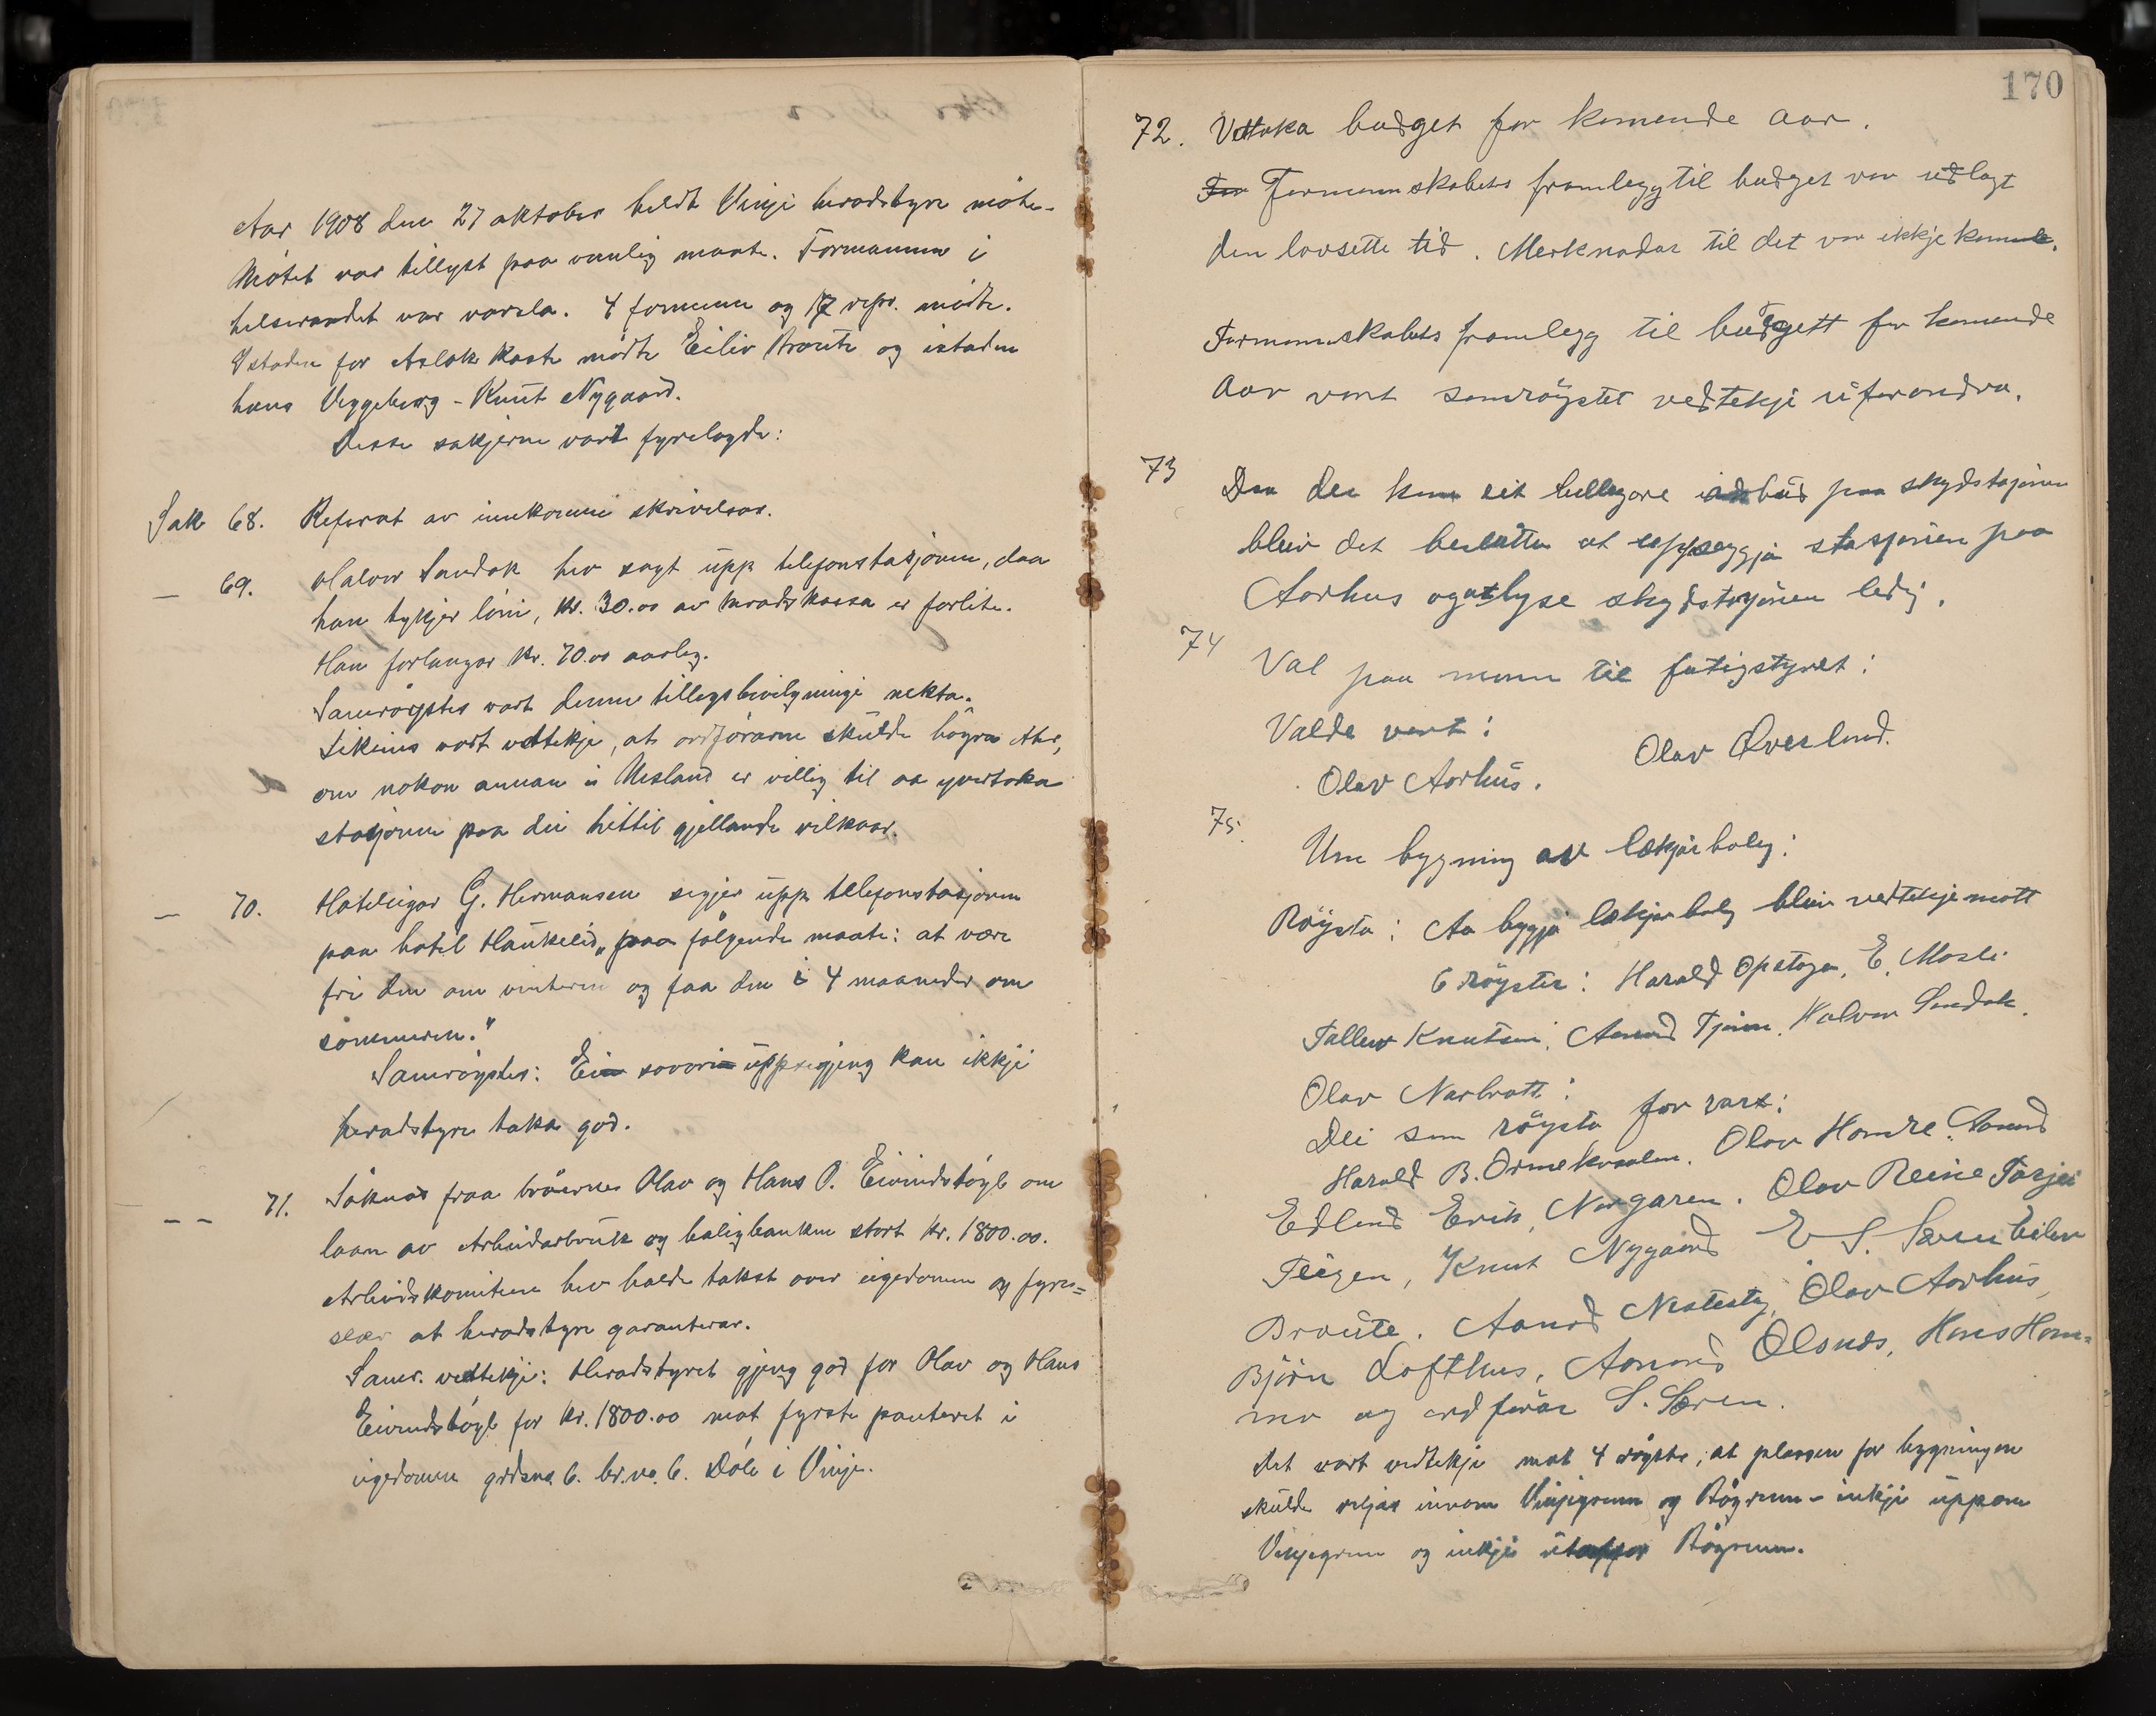 Aar 1908 den 27 oktober heldt Vinje heradstyre möte.
Mötet var tillyst paa vanlig maate. Formannen i
helseraadet var varsla. 4 formenn og 17 repr. mödte.
Istaden for Aslak Kaste mödte Eiliv Broute og istaden
hans Veggeberg - Knut Nygaard.
Desse sakjerne vart fyrelagde:
Sak 68. Referat av innkomne skrivelsar.
— 69. Halvor Sandok hev sagt upp telefonstasjonen, daa
han tykjer löni, kr. 30.00 av heradskassa er forlite.
Han forlangar kr. 70.00 aarleg.
Samröystes vart denne tillegsbevilgningi nekta.
Likeins vart vedtekje, at ordföraren skulde högra ettr,
om nokon annan i Mesland er villig til aa yvertaka
stasjonen paa dei hittil gjellande vilkaar.
— 70. Hoteleigar G. Hermansen segjer upp telefonstasjonen
paa hotel Haukelid „paa fölgende maate: at være
fri den om vinteren og faa den i 4 maaneder om
sommeren."
Samröystes: Ei sovori uppsigjing kan ikkje
heradstyre taka god.
— — 71. Söknad fraa bröerne Olav og Hans O. Eivindsbögle om
laan av Arbeidarbruk og boligbanken stort kr. 1800.00.
Arbeidskomiteen hev halde takst over eigedomen og fyre=
slær at heradstyre garanterar.
Samr. vedtekje: Heradstyret gjeng god for Olav og Hans
Eivindsbögle for kr. 1800.00 mot fyrste panteret i
eigedomen grdsno. 6. br.no. 6. Döli i Vinje.
170
72. Vettaka budget for komende aar.
For Formannskabets framlegg til budget var udlagt
den lovsette tid. Merknadar til det var ikkje komne.
Formannskabets framlegg til budgett for komende
Aar vart samröystet vedtekje uforandra.
73 Daa der kom eit billegare anbud paa skydstasjonen
bleiv det beslutta at uppseggja stasjonen paa
Aarhus og at lyse skydstasjonen ledig.
74 Val paa menn til fatigstyret:
Valde vart:
Olav Aarhus. Olav Øverland.
75. Um bygning av lækjarbolig:
Röysta: Aa byggja lækjarbolig bleiv vedtekje mott
6 röyster: Harald Opstoga, E. Mosli
Tallev Knutsen, Aanund Tjönn, Halvor Sandok.
Olav Narbratt:
Dei som röysta for vart:
Harald B. Ormekvalen. Olav Hamre. Aanund
Edland Erik, Norgaren. Olav Reine Tarjei
Teigen, Knut Nygaard E S. Særen Eiliv
Broute. Aanund Nestestog, Olav Aarhus,
Björn Lofthus, Aanund Olsnes, Hans Hom=
mo og ordförar S. Særen.
Det vart vedtekje mot 4 röyster, at plassen for bygningen
skulde veljas innom Vinjegrenn og Bögrenn - inkje uppom
Vinjegrenn og inkje utanfor Bögrenn.